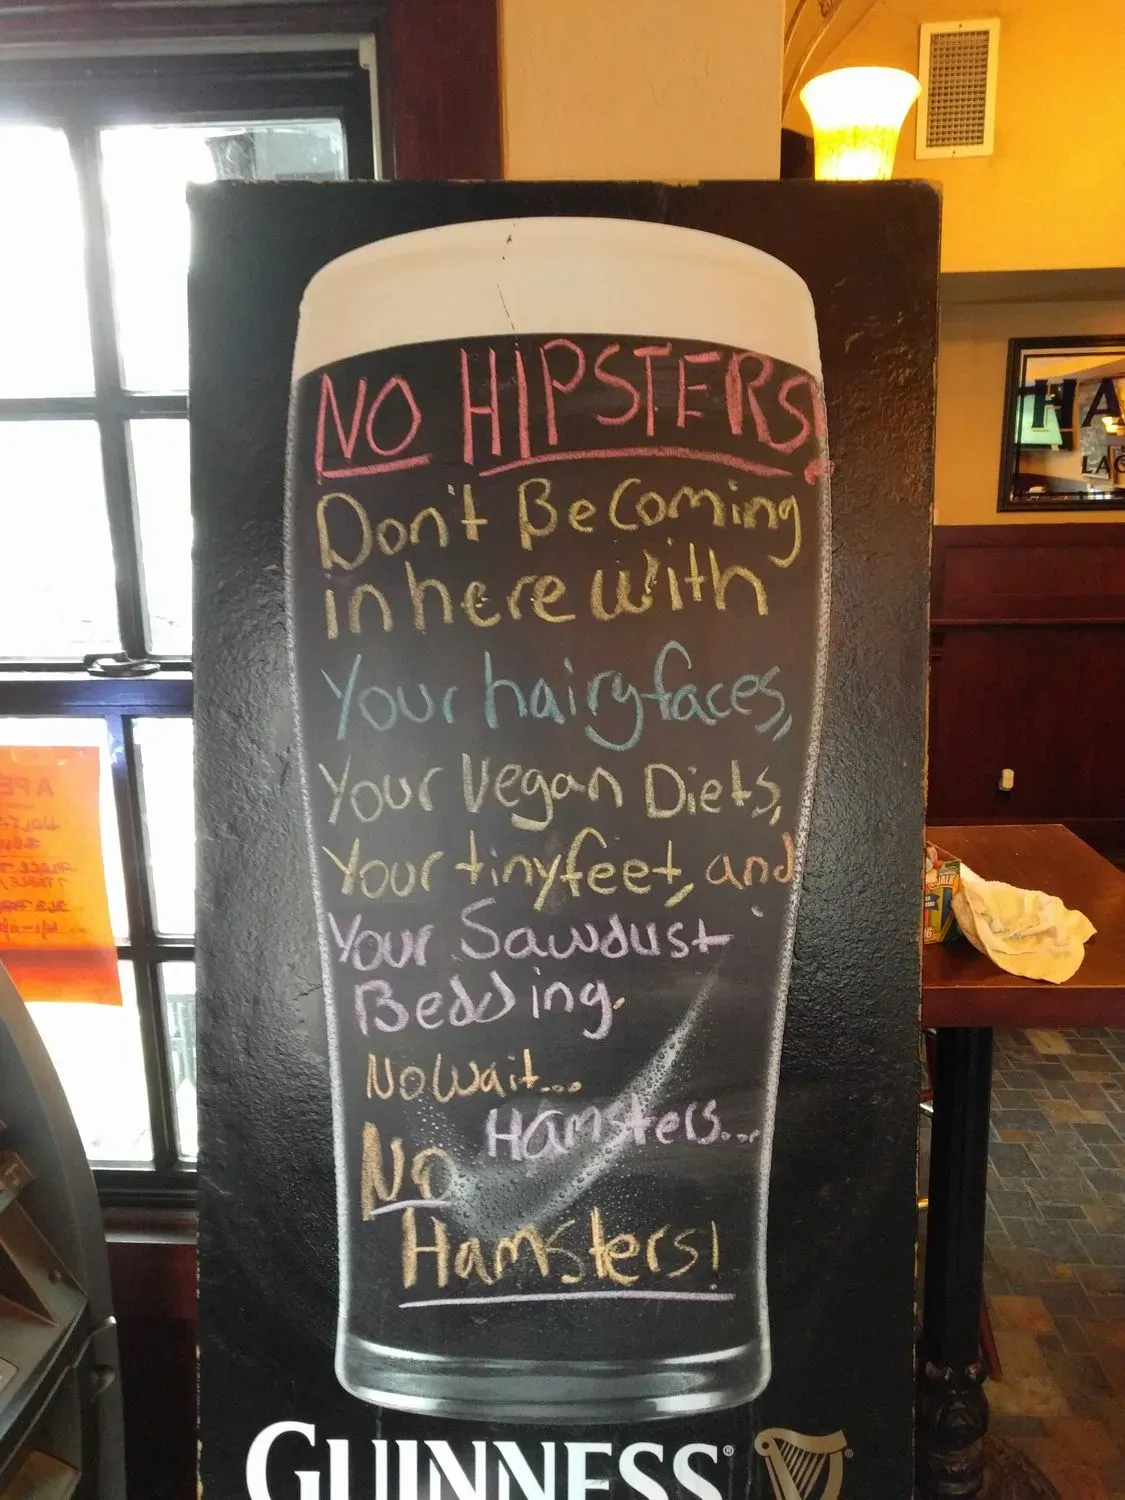 NO HIPSTERS!
Don't Be Coming
in here with
Your hairy faces,
Your Vegan Diets,
Your tiny feet, and
Your Sawdust
Bedding.
No Wait...
Hamsters...
NO
Hamsters!
GUINNESS®
HA
LAG
APE